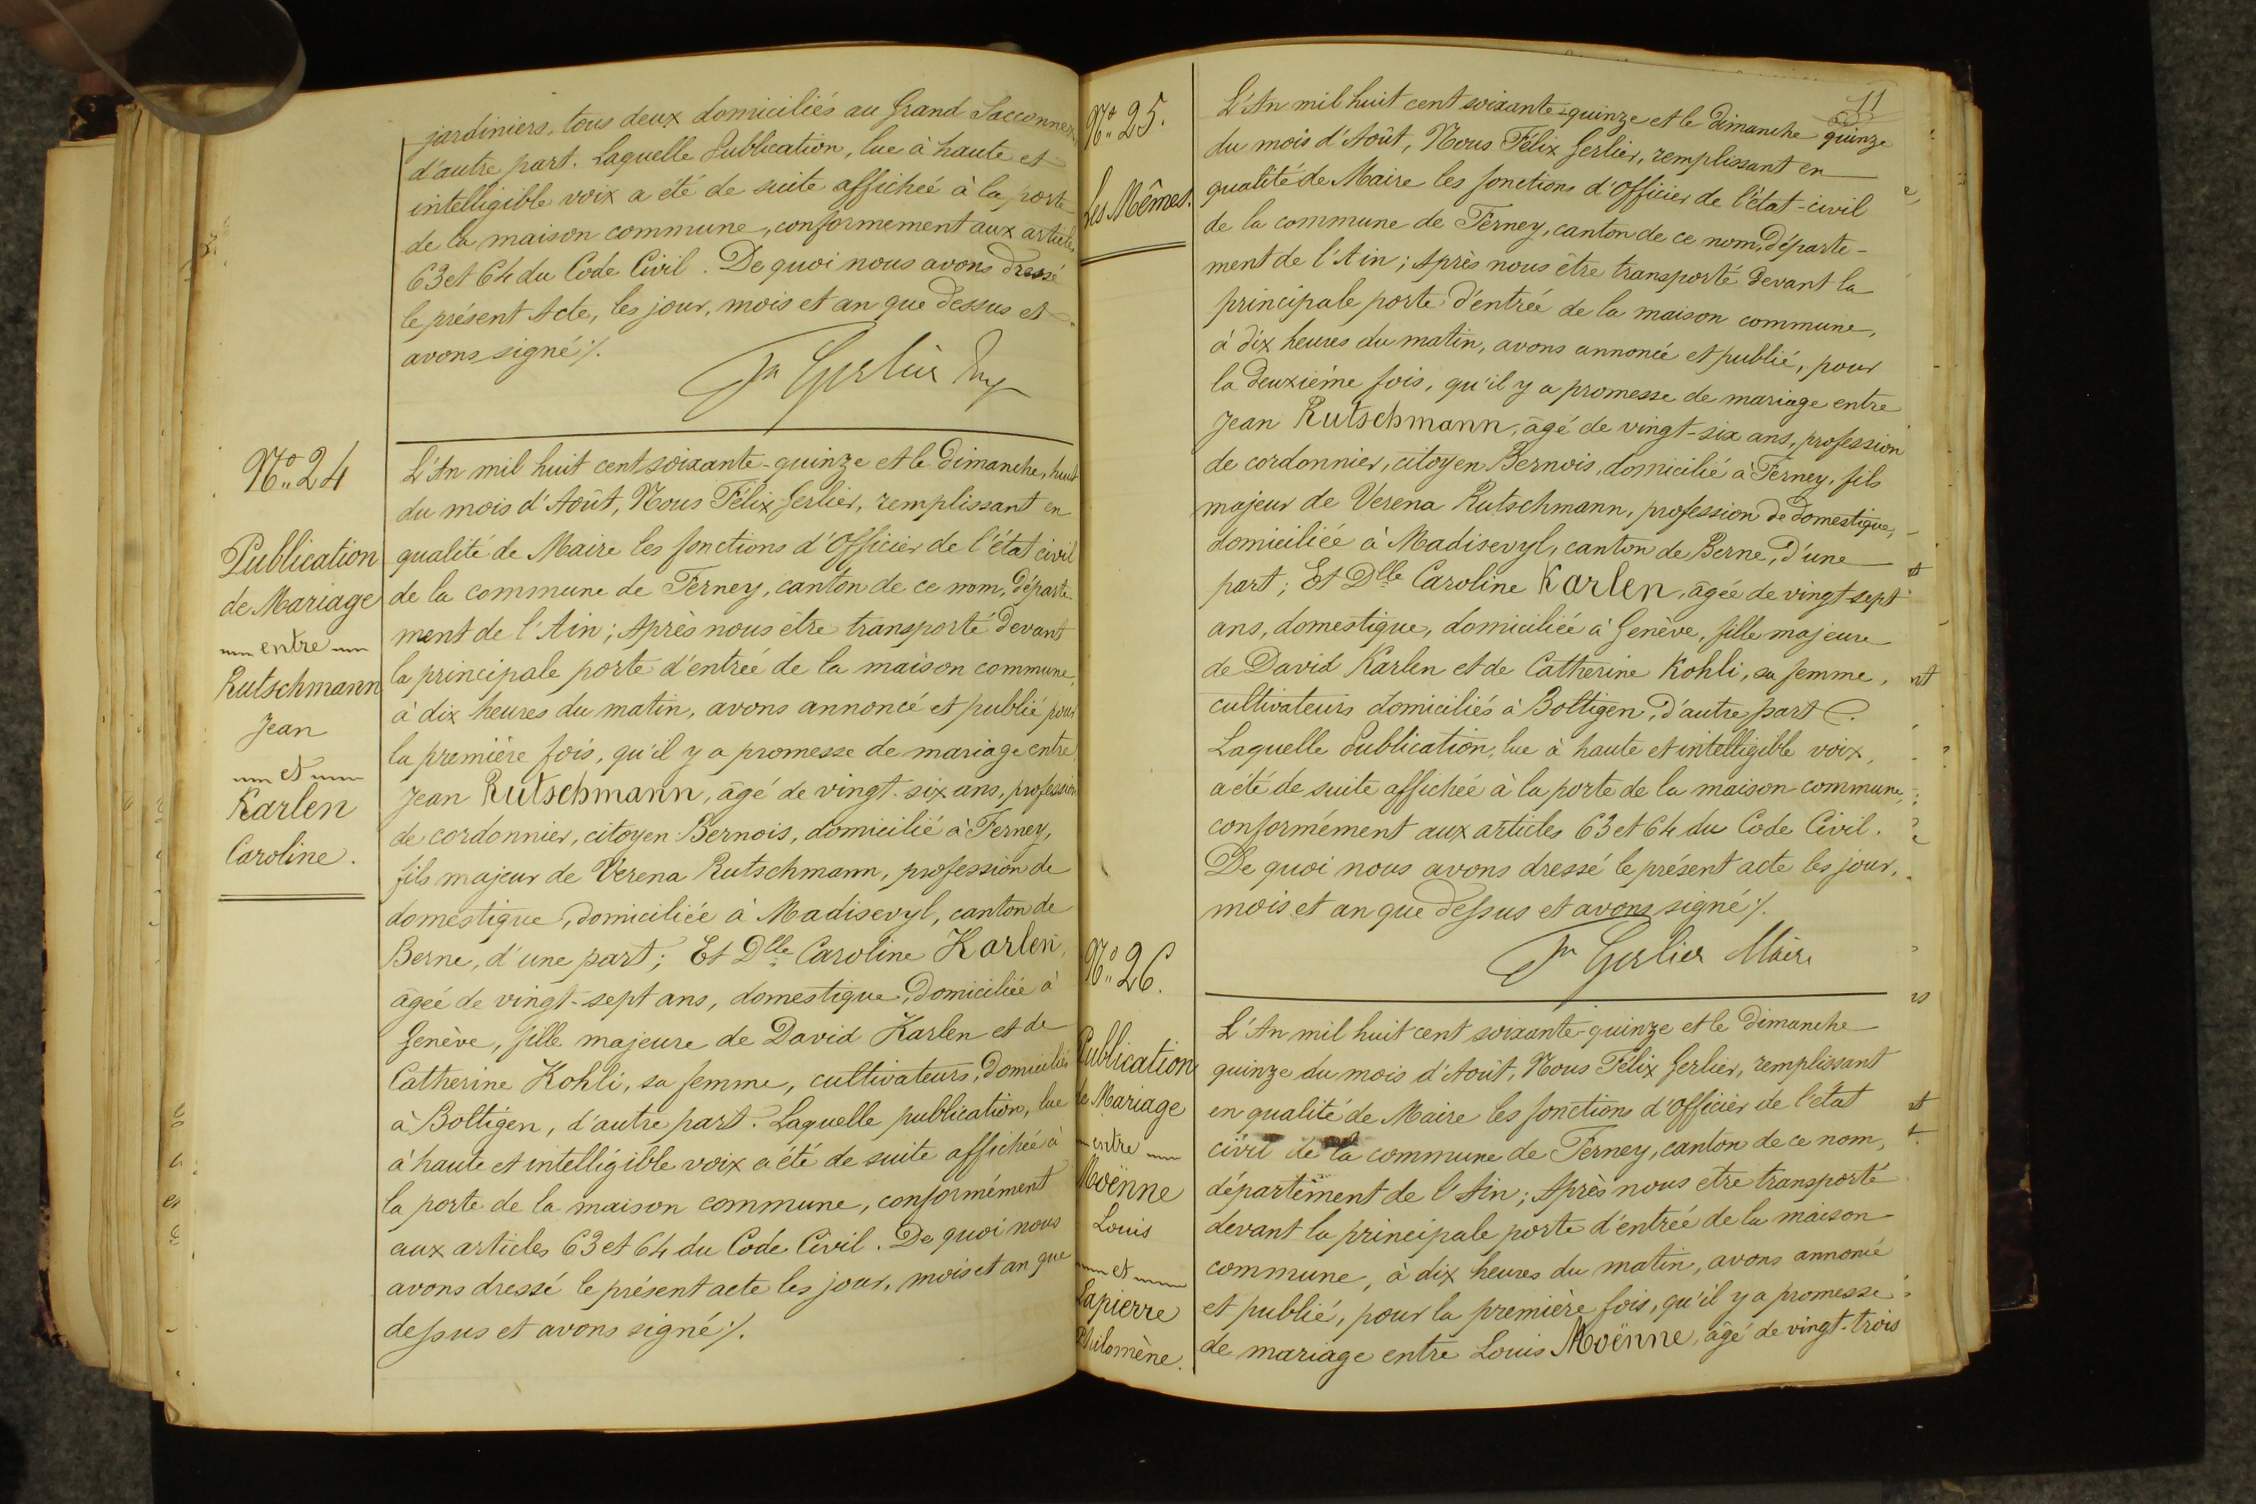 jardiniers, tous deux domiciliés au Grand Sacconnex
d'autre part. Laquelle Publication, lue à haute et
intelligible voix a été de suite affichée à la porte
de la maison commune, conformement aux articles
63 et 64 du Code Civil. De quoi nous avons dressé
le présent Acte, les jour, mois et an que dessus et
avons signé ./.
Gerlier
N.o 24
Publication
de Mariage
entre
Rutschmann
Jean
et
Karlen
Caroline.
L'An mil huit cent soixante-quinze et le Dimanche, huit
du mois d'Août, Nous Félix Gerlier, remplissant en
qualité de Maire les fonctions d'Officier de l'état civil
de la commune de Ferney, canton de ce nom, départe-
ment de l'Ain; Après nous être transporté devant
la principale porte d'entrée de la maison commune,
à dix heures du matin, avons annoncé et publié pour
la première fois, qu'il y a promesse de mariage entre
Jean Rutschmann, âgé de vingt-six ans, profession
de cordonnier, citoyen Bernois, domicilié à Ferney,
fils majeur de Verena Rutschmann, profession de
domestique, domiciliée à Madisevyl, canton de
Berne, d'une part; Et Dlle Caroline Karlen,
âgée de vingt-sept ans, domestique, domiciliée à
Genève, fille majeure de David Karlen et de
Catherine Kohli, sa femme, cultivateurs, domiciliés
à Boltigen, d'autre part. Laquelle publication, lue
à haute et intelligible voix a été de suite affichée à
la porte de la maison commune, conformément
aux articles 63 et 64 du Code Civil. De quoi nous
avons dressé le présent acte les jour, mois et an que
dessus et avons signé ./.
11
N.o 25.
Les Mêmes.
L'An mil huit cent soixante-quinze et le Dimanche quinze
du mois d'Août, Nous Félix Gerlier, remplissant en
qualité de Maire les fonctions d'Officier de l'état-civil
de la commune de Ferney, canton de ce nom, départe-
ment de l'Ain; Après nous être transporté devant la
principale porte d'entrée de la maison commune,
à dix heures du matin, avons annoncé et publié, pour
la deuxième fois, qu'il y a promesse de mariage entre
Jean Rutschmann, âgé de vingt-six ans, profession
de cordonnier, citoyen Bernois, domicilié à Ferney, fils
majeur de Verena Rutschmann, profession de domestique,
domiciliée à Madisevyl, canton de Berne, d'une
part; Et Dlle Caroline Karlen, âgée de vingt-sept
ans, domestique, domiciliée à Genève, fille majeure
de David Karlen et de Catherine Kohli, sa femme,
cultivateurs domiciliés à Boltigen, d'autre part.
Laquelle Publication, lue à haute et intelligible voix,
a été de suite affichée à la porte de la maison commune,
conformément aux articles 63 et 64 du Code Civil.
De quoi nous avons dressé le présent acte les jour,
mois et an que dessus et avons signé ./.
Gerlier Maire
N.o 26.
Publication
de Mariage
entre
Moënne
Louis
et
Lapierre
Philomène.
L'An mil huit cent soixante-quinze et le Dimanche
quinze du mois d'Août, Nous Félix Gerlier, remplissant
en qualité de Maire les fonctions d'Officier de l'état
civil de la commune de Ferney, canton de ce nom,
département de l'Ain; Après nous etre transporté
devant la principale porte d'entrée de la maison
commune, à dix heures du matin, avons annoncé
et publié, pour la première fois, qu'il y a promesse
de mariage entre Louis Moënne, âgé de vingt-trois